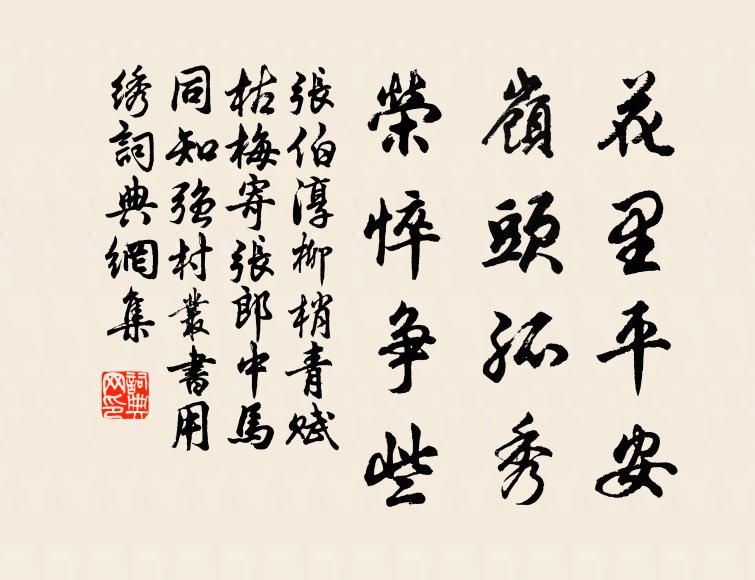 花里平安
嶺頭孤秀
榮悴争些
張伯淳柳梢青賦
枯梅寄張郎中馬
同知强村叢書用
綉詞典網集
詞典
网印